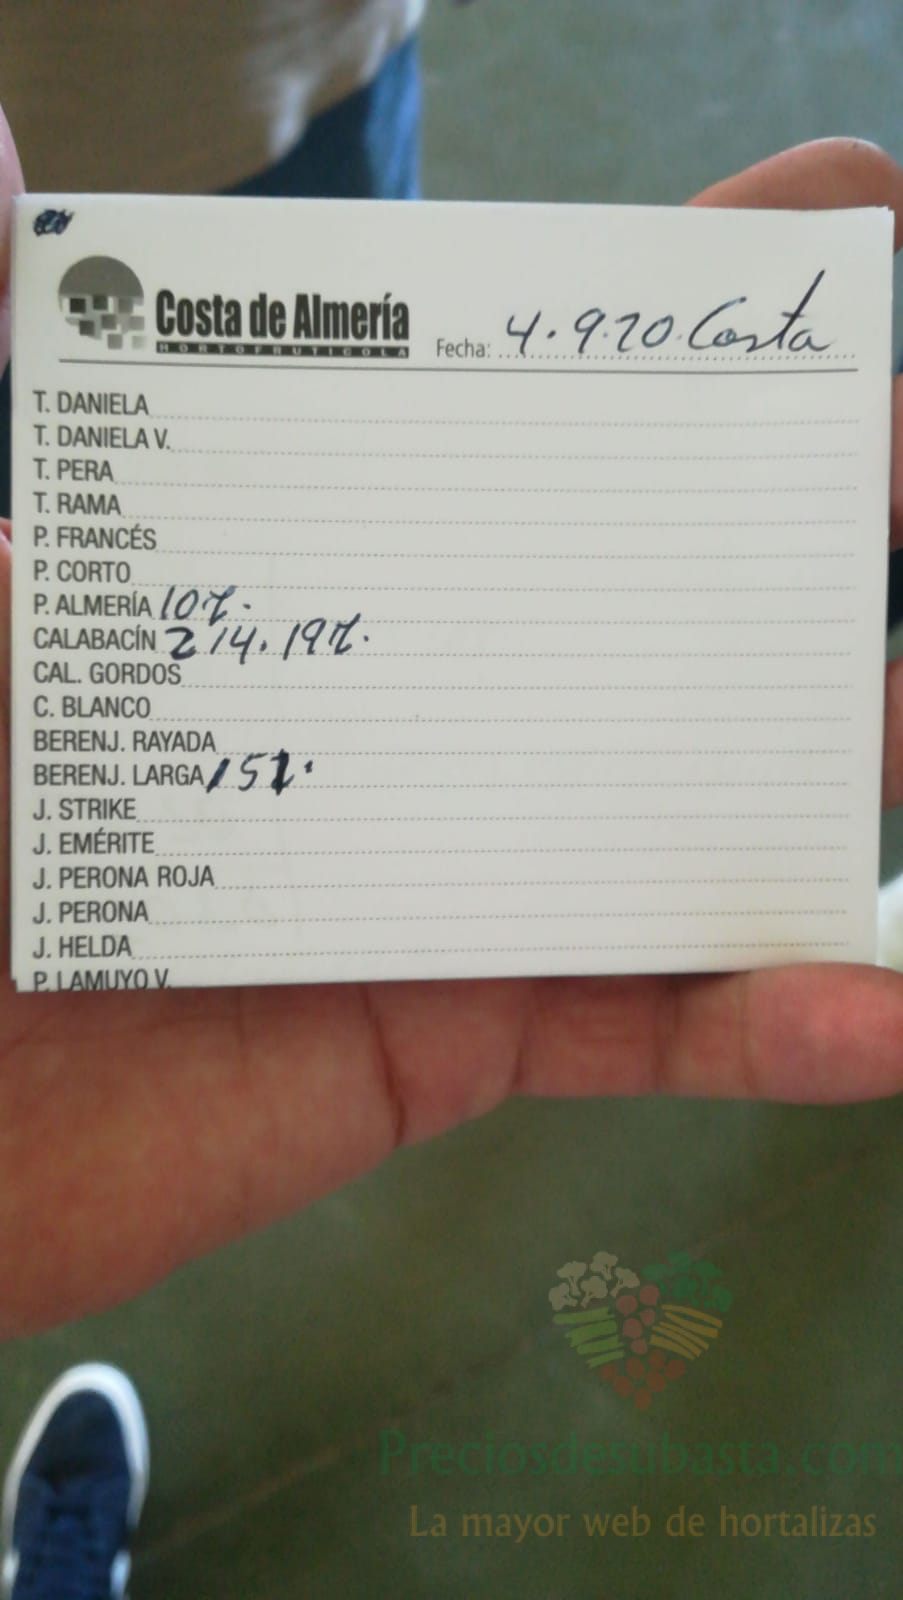 Costa de Almería
HORTOFRUTICOLA
Fecha: 4.9.20. Costa
T. DANIELA
T. DANIELA V.
T. PERA
T. RAMA
P. FRANCÉS
P. CORTO
P. ALMERÍA 107.
CALABACÍN 214. 197.
CAL. GORDOS
C. BLANCO
BERENJ. RAYADA
BERENJ. LARGA 151.
J. STRIKE
J. EMÉRITE
J. PERONA ROJA
J. PERONA
J. HELDA
P. LAMUYO V.
Preciosdesubasta.com
La mayor web de hortalizas